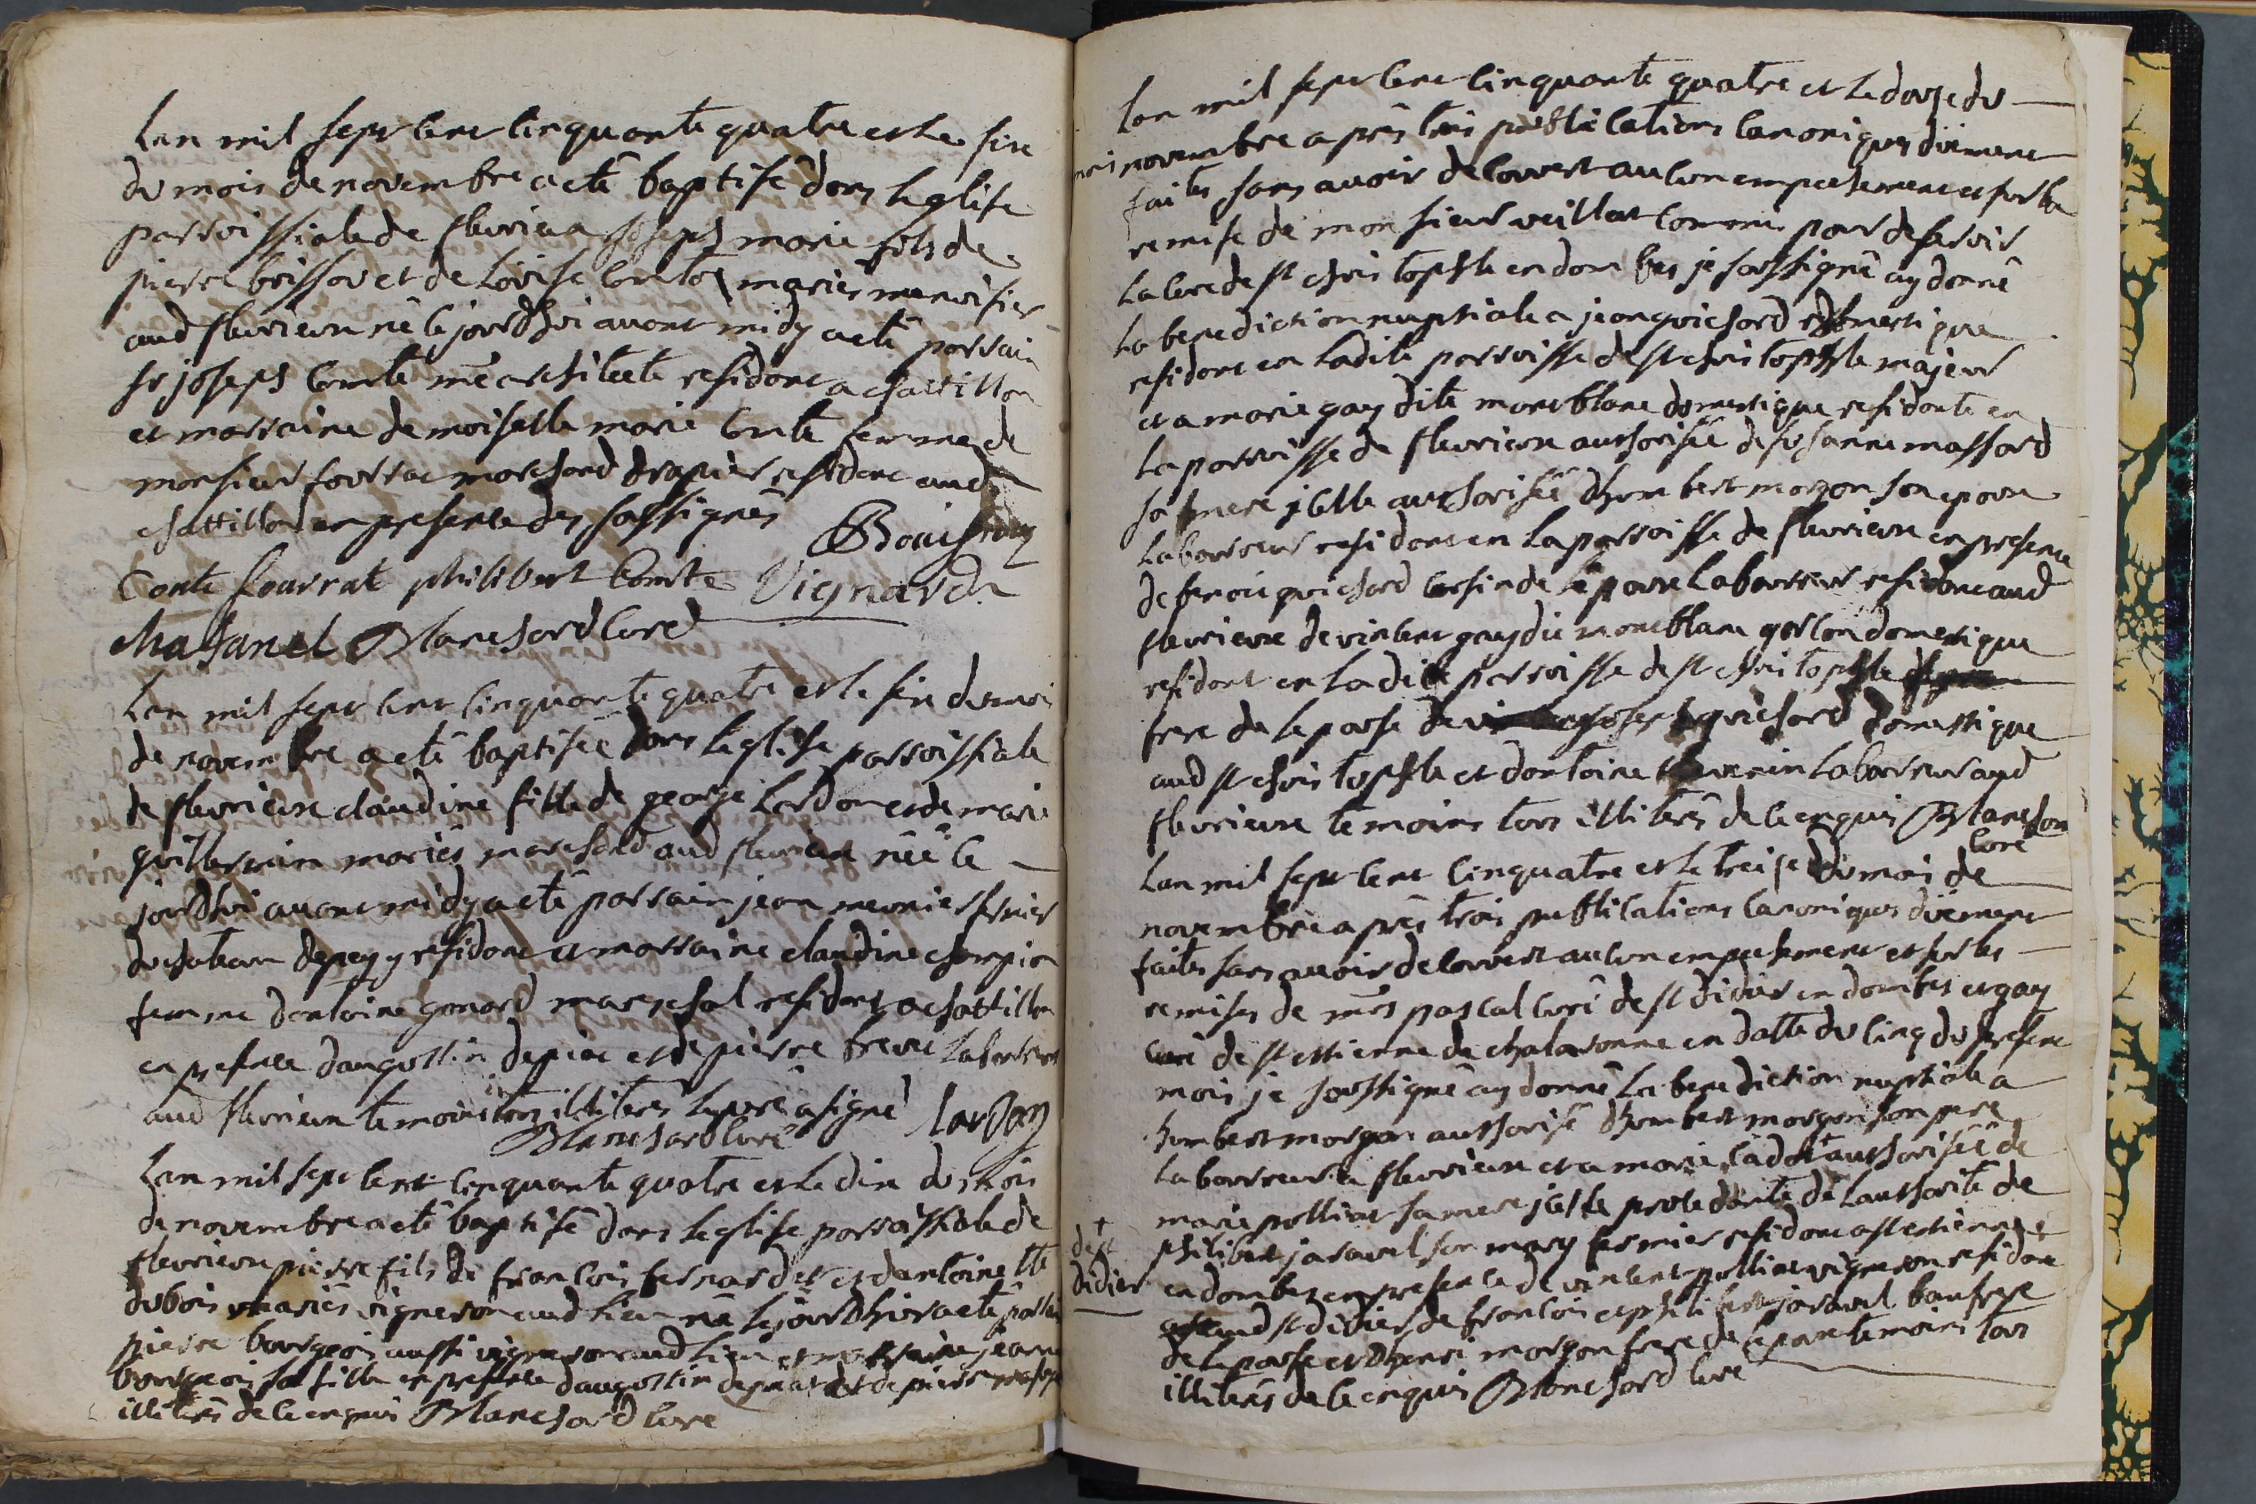 Lan mil sept cent cinquante quatre et le six
du mois de novembre a eté baptisé dans leglise
parroissiale de fleurieu joseph marie fils de
pierre boisson et de Loüise Comte mariés menuisier
aud fleurieux né le jourdhui avant midy a eté parrain
sr joseph Comte me architecte residant a chattillon
et marraine demoiselle marie Comte femme de
monsieur fourrat marchand drapier residant aud
chattillon en presence des soussignés
Bouisson
Conte fourrat philibert Comte Vignard
Chasanel Blanchard Curé
Lan mil sept cent cinquante quatre et le six du moi
de novembre a eté baptisée dans leglise parroissiale
de fleurieux claudine fille de george Lardon et de marie
guillermin mariés marchand aud fleurieux née le
jourdhui avant midy a eté parrain jean meunier fermier
du chateau de pey y residant et marraine claudine champion
femme dantoine gonard marechal residant a chattillon
en presence daugustin depiat et de pierre Laboureurs
aud fleurieux temoins illiterés le pere a signé Lardon
Blanchard Curé
Lan mil sept cent cinquante quatre et le dix du mois
de novembre a eté baptisé dans leglise parroissiale de
fleurieux pierre fils de francois bernardet et dantoinette
dubois mariés vigneron aud lieu né le jourdhier a eté parrain
pierre bourgeois aussi vigneron aud lieu et marraine jeanne
bourgeois sa fille en presence daugustin depiat et de pierre
illiterés de ce enquis Blanchard Curé
Lan mil sept cent cinquante quatre et le douze du
mois novembre après trois publications canoniques düement
faites sans avoir decouvert aucun empechement et sur la
remise de monsieur veillat commis pour deservir
la cure de st christophle en dombes je soussigné ay donné
la benediction nuptiale a jean guichard domestique
residant en ladite parroisse de st christophle majeur
et a marie gay dite montblanc domestique residante en
la parroisse de fleurieux authorisée de susanne massard
sa mere jcelle authorisée dhumbert morgon son epoux
laboureur residant en la parroisse de fleurieux en presence
de benoit guichard cousin de lepoux laboureur residant aud
fleurieux de vincent gay dit montblanc garcon domestique
residant en ladite parroisse de st christophle
frere de lepouse de joseph guichard domestique
aud st christophle et dantoine thevenin laboureur aud
fleurieux temoins tous illiterés de ce enquis Blanchard
Curé
Lan mil sept cent cinquatre et le treise du mois de
novembre après trois publications canoniques düement
faites sans avoir decouvert aucun empechement et sur les
remises de mrs pascal curé de st didier en dombes et gay
curé de st estienne de chalaronne en datte du cinq du present
mois je soussigné ay donné la benediction nuptiale a
humbert morgon authorisé dhumbert morgon son pere
laboureur a fleurieux et a marie cadot authorisée de
marie polliat sa mere jcelle procedante de lauthorité de
philibert jaravel son mary fermier residant a st estienne
en dombes en presence de vincent polliat vigneron residant
aud st didier de francois et philibert jaravel beaufrere
de lepouse et dhenri morgon frere de lepoux temoins tous
illiterés de ce enquis Blanchard Curé
+
de st
didier